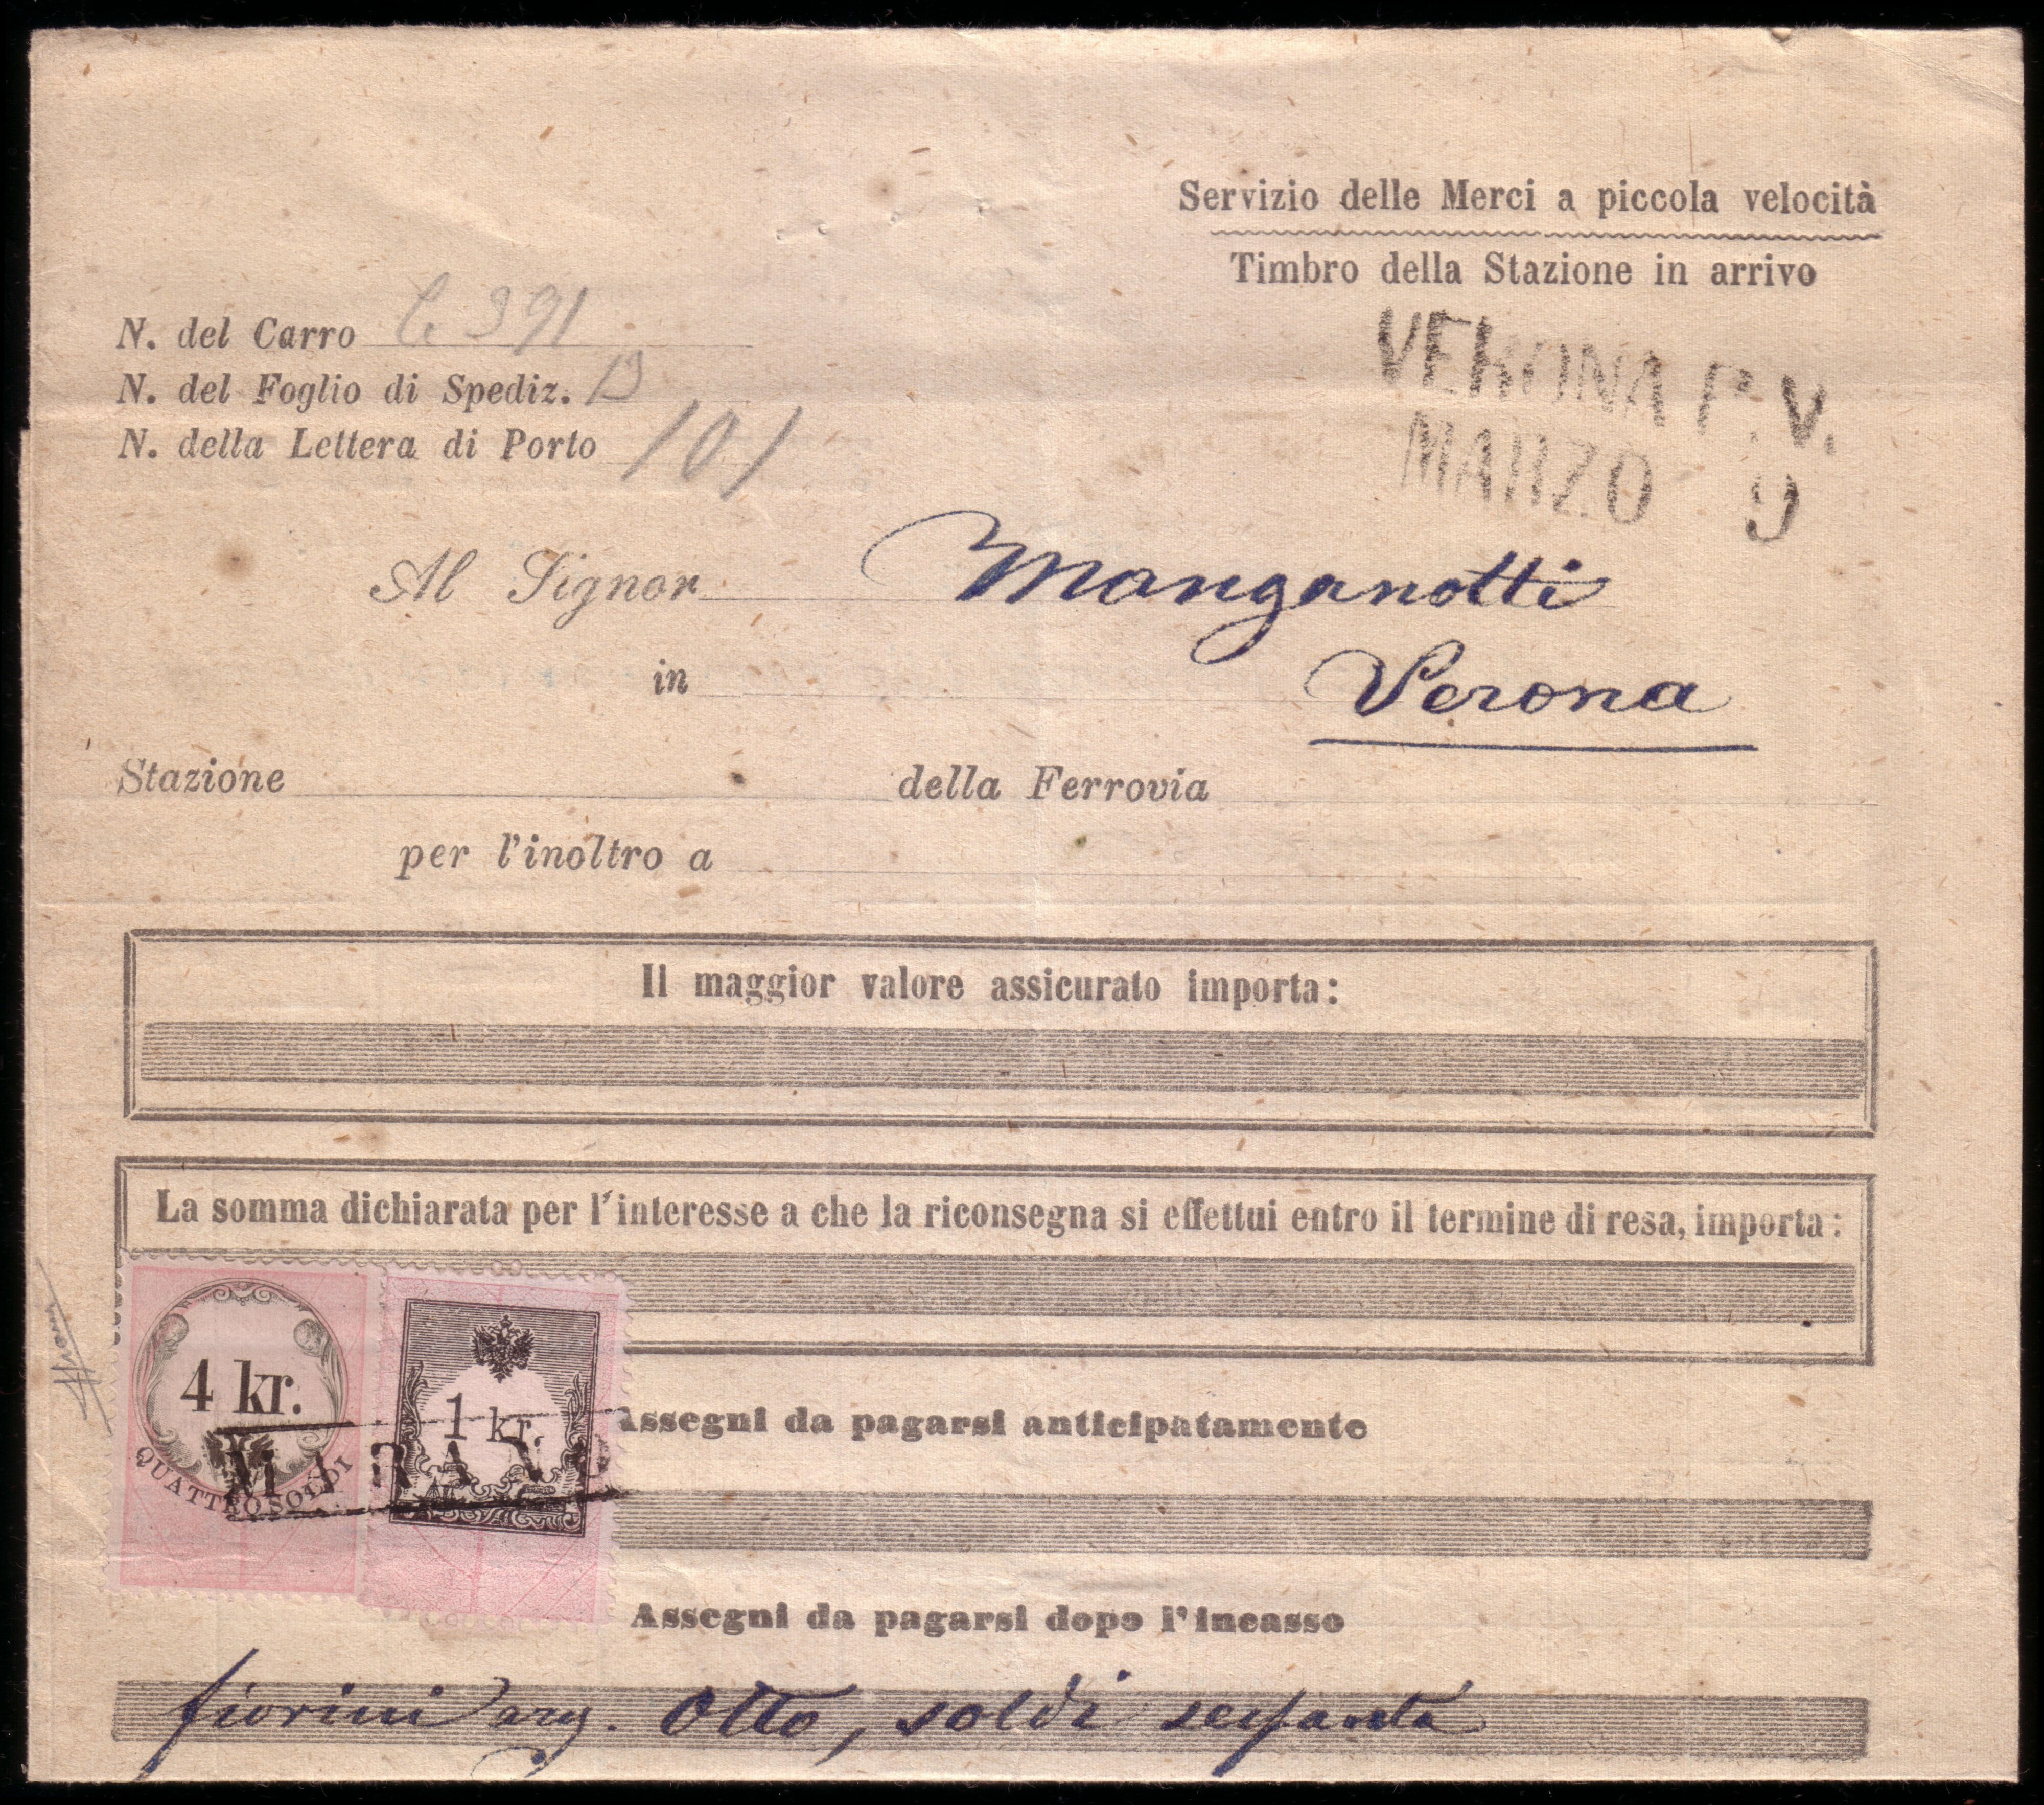 Servizio delle Merci a piccola velocità
Timbro della Stazione in arrivo
VERONA P. V.
MARZO 9
N. del Carro 391
N. del Foglio di Spediz.
N. della Lettera di Porto 101
Al Signor Manganotti
in Verona
Stazione della Ferrovia
per l'inoltro a
Il maggior valore assicurato importa:
La somma dichiarata per l'interesse a che la riconsegna si effettui entro il termine di resa, importa:
4 kr.
QUATTRO SOLDI
1 kr.
Assegni da pagarsi anticipatamente
Assegni da pagarsi dopo l'incasso
fiorini arg. Otto, soldi sessanta